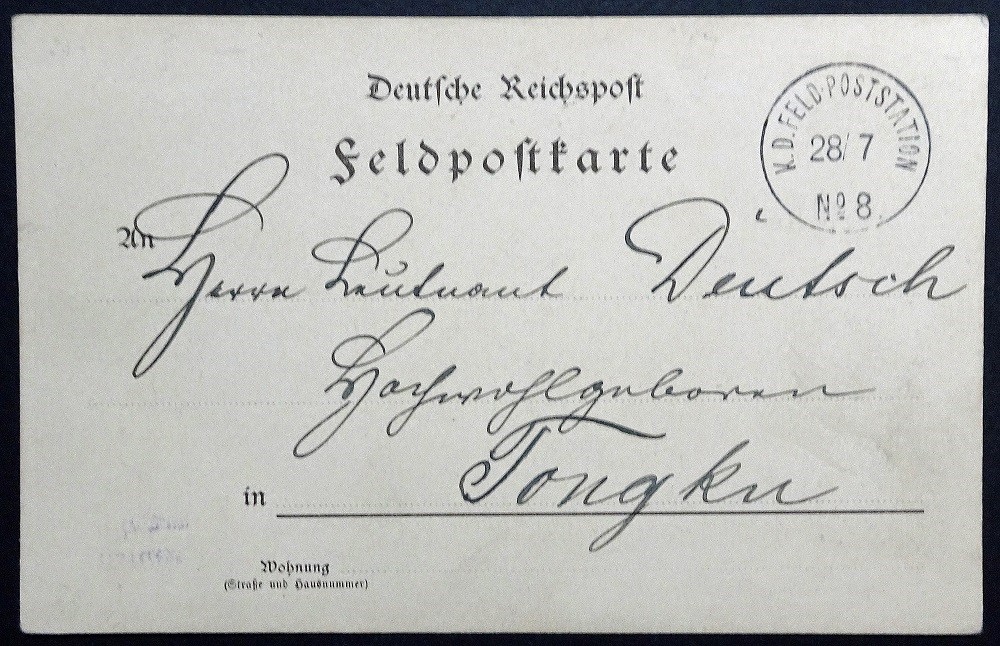 Deutsche Reichspost
Feldpostkarte
K.D. FELD-POSTSTATION
28/7
No 8
An
Herrn Leutnant Deutsch
Hochwohlgeboren
in Tongku
Wohnung
(Straße und Hausnummer)